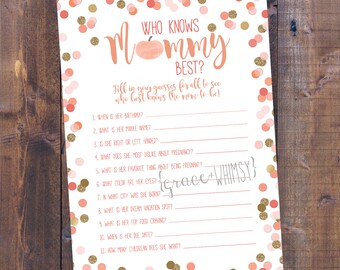 WHO KNOWS
Mommy
BEST?
Fill in your guesses for all to see
who best knows the mom to be!
1. WHEN IS HER BIRTHDAY?
2. WHAT IS HER MIDDLE NAME?
3. IS SHE RIGHT OR LEFT HANDED?
4. WHAT DOES SHE MOST DISLIKE ABOUT PREGNANCY?
5. WHAT IS HER FAVORITE THING ABOUT BEING PREGNANT?
6. WHAT COLOR ARE HER EYES?
{grace+WHIMSY}
7. IN WHAT CITY WAS SHE BORN?
8. WHAT IS HER DREAM VACATION SPOT?
9. WHAT IS HER TOP FOOD CRAVING?
10. WHEN IS HER DUE DATE?
11. HOW MANY CHILDREN DOES SHE WANT?